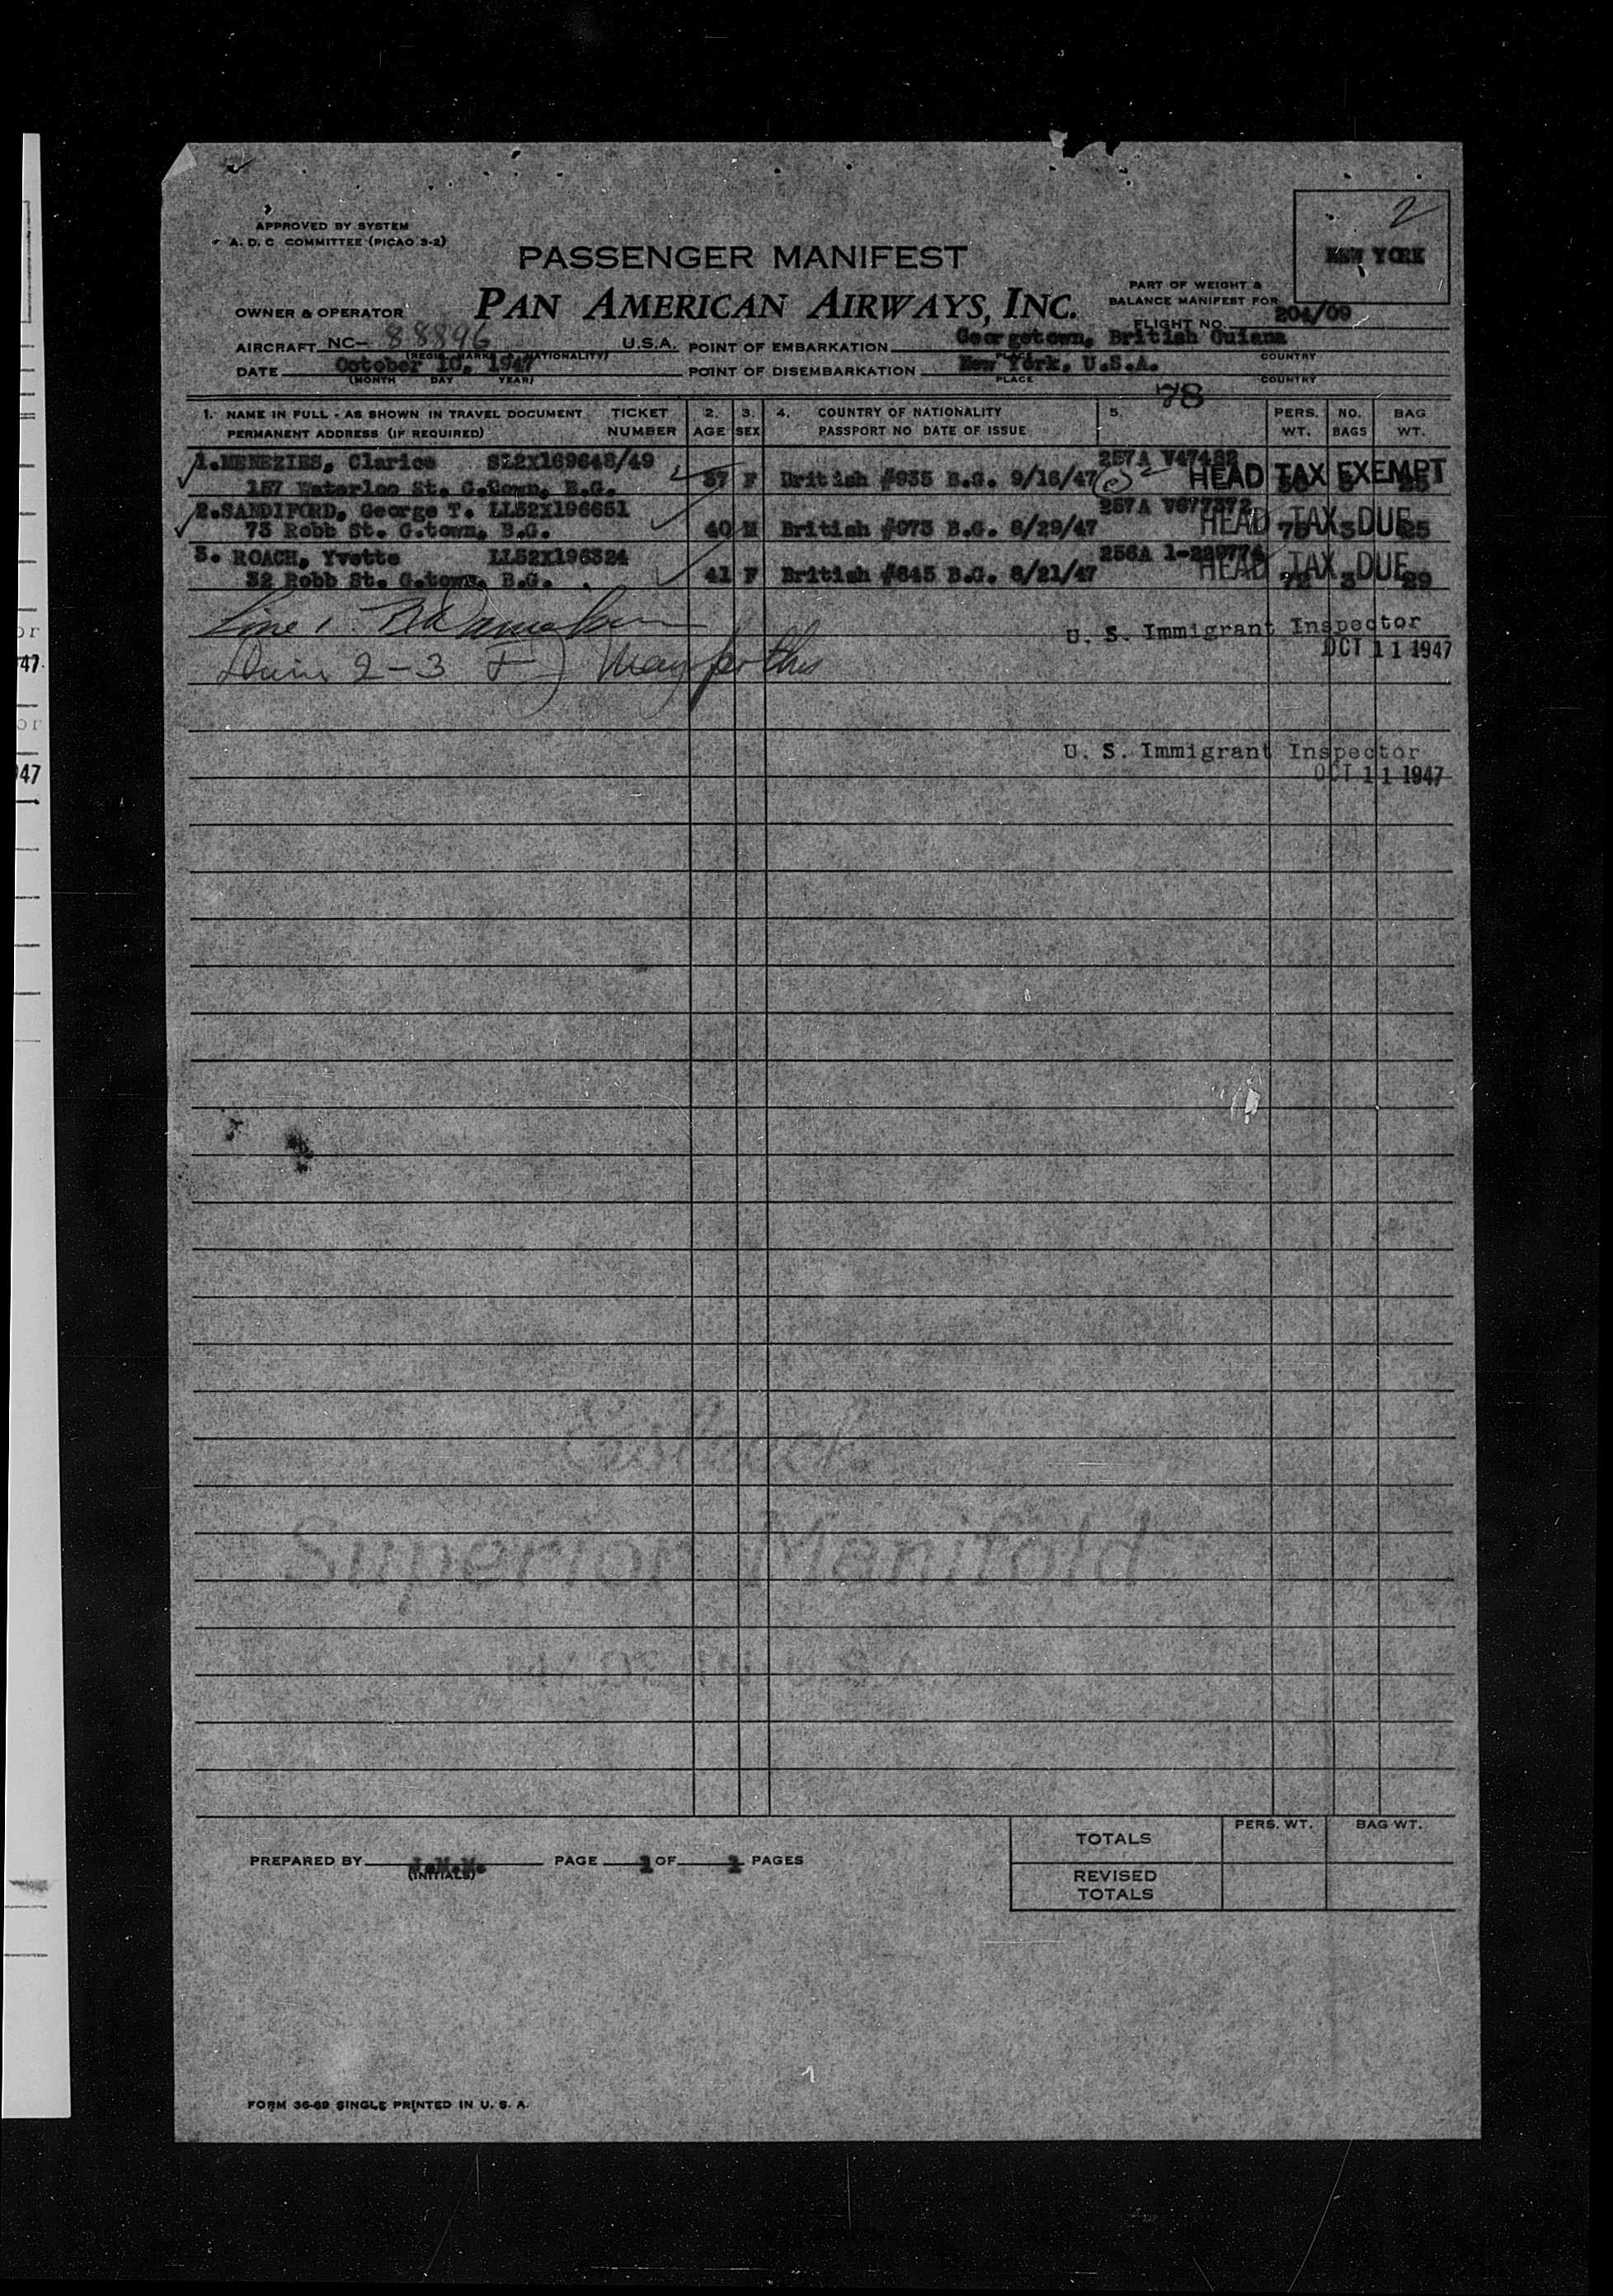 2
APPROVED BY SYSTEM
A. D. C. COMMITTEE (PICAO 3-2)
NEW YORK
PASSENGER MANIFEST
PART OF WEIGHT &
BALANCE MANIFEST FOR
OWNER & OPERATOR PAN AMERICAN AIRWAYS, INC.
FLIGHT NO. 204/09
AIRCRAFT NC- 88896 U.S.A. POINT OF EMBARKATION Georgetown, British Guiana
(REGIS. MARKS & NATIONALITY) PLACE COUNTRY
DATE October 10, 1947 POINT OF DISEMBARKATION New York, U.S.A.
(MONTH DAY YEAR) PLACE COUNTRY
78
1. NAME IN FULL - AS SHOWN IN TRAVEL DOCUMENT TICKET 2. 3. 4. COUNTRY OF NATIONALITY 5. PERS. NO. BAG
PERMANENT ADDRESS (IF REQUIRED) NUMBER AGE SEX PASSPORT NO DATE OF ISSUE WT. BAGS WT.
1. MENEZIES, Clarice SL2X169648/49 257A V47482
157 Waterloo St. G.Town, B.G. 37 F British #935 B.G. 9/16/47 HEAD TAX EXEMPT
2. SANDIFORD, George T. LL52X196651 257A V677372
73 Robb St. G.town, B.G. 40 M British #973 B.G. 8/29/47 HEAD TAX DUE 75 3 25
3. ROACH, Yvette LL52X196324 256A 1-229774
32 Robb St. G.town, B.G. 41 F British #845 B.G. 8/21/47 HEAD TAX DUE 72 3 29
Line 1.
U. S. Immigrant Inspector
OCT 11 1947
2-3
U. S. Immigrant Inspector
OCT 11 1947
Superior Manifold
MADE IN U.S.A.
TOTALS PERS. WT. BAG WT.
PREPARED BY J.M.M. PAGE 1 OF 1 PAGES
(INITIALS)
REVISED
TOTALS
FORM 36-69 SINGLE PRINTED IN U. S. A.
or
47
or
47